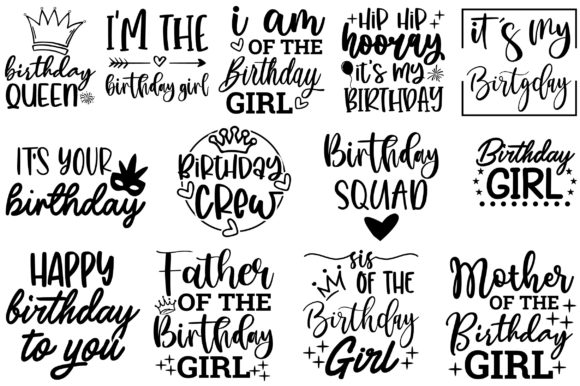 birthday
QUEEN
I'M THE
birthday girl
i am
OF THE
Birthday
GIRL
HIP HIP
hooray
it's my
BIRTHDAY
it's my
Birtgday
IT'S YOUR
birthday
BIRTHDAY
CREW
Birthday
SQUAD
Birthday
GIRL
HAPPY
birthday
to you
Father
OF THE
Birthday
GIRL
sis
OF THE
Birthday
Girl
Mother
OF THE
Birthday
GIRL